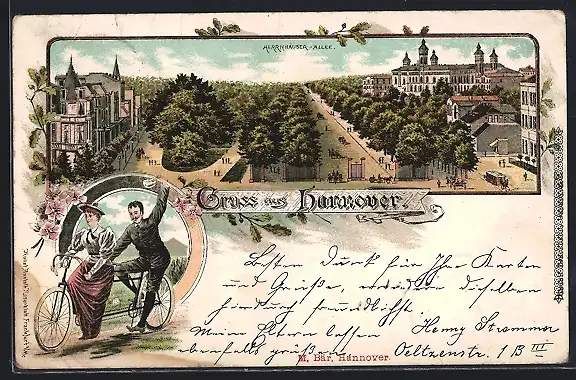 HERRENHÄUSER-ALLEE.
Gruss aus Hannover.
Besten Dank für Ihre Karten
und Grüße, erwidere dieselben
hierdurch freundlichst.
Meine Eltern lassen
ebenfalls grüßen
Henny Strammer
Oeltzenstr. 1 B III
M. Bär, Hannover.